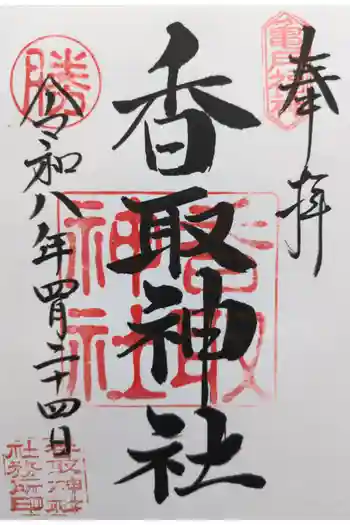 奉拝
亀戸
香取神社
香取神社
勝
令和八年四月二十四日
香取神社
社務所印